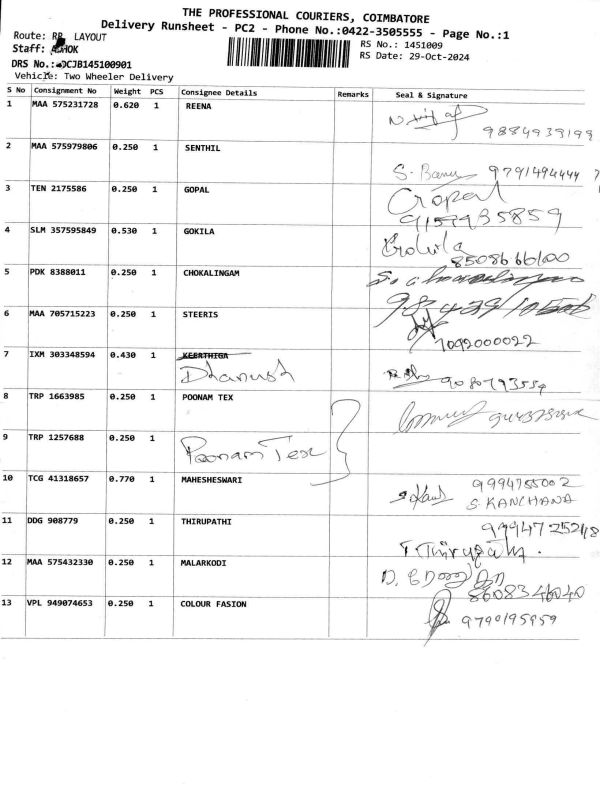 THE PROFESSIONAL COURIERS, COIMBATORE
Delivery Runsheet - PC2 - Phone No.:0422-3505555 - Page No.:1
Route: RR LAYOUT
RS No.: 1451009
Staff: ASHOK
RS Date: 29-Oct-2024
DRS No.: DCJB145100901
Vehicle: Two Wheeler Delivery
S No Consignment No Weight PCS Consignee Details Remarks Seal & Signature
1 MAA 575231728 0.620 1 REENA
9884939199
2 MAA 575979806 0.250 1 SENTHIL
S. Banu 9791494444
3 TEN 2175586 0.250 1 GOPAL
Gopal
9159935859
4 SLM 357595849 0.530 1 GOKILA
Gokila
8508666100
5 PDK 8388011 0.250 1 CHOKALINGAM
6 MAA 705715223 0.250 1 STEERIS
7092000022
7 IXM 303348594 0.430 1 KEERTHIGA
Dhanush
9080793554
8 TRP 1663985 0.250 1 POONAM TEX
9 TRP 1257688 0.250 1
Poonam Tex
10 TCG 41318657 0.770 1 MAHESHESWARI
9994755002
S. KANCHANA
11 DDG 908779 0.250 1 THIRUPATHI
9994725248
T. Thirupathi.
12 MAA 575432330 0.250 1 MALARKODI
8608346040
13 VPL 949074653 0.250 1 COLOUR FASION
9790195959